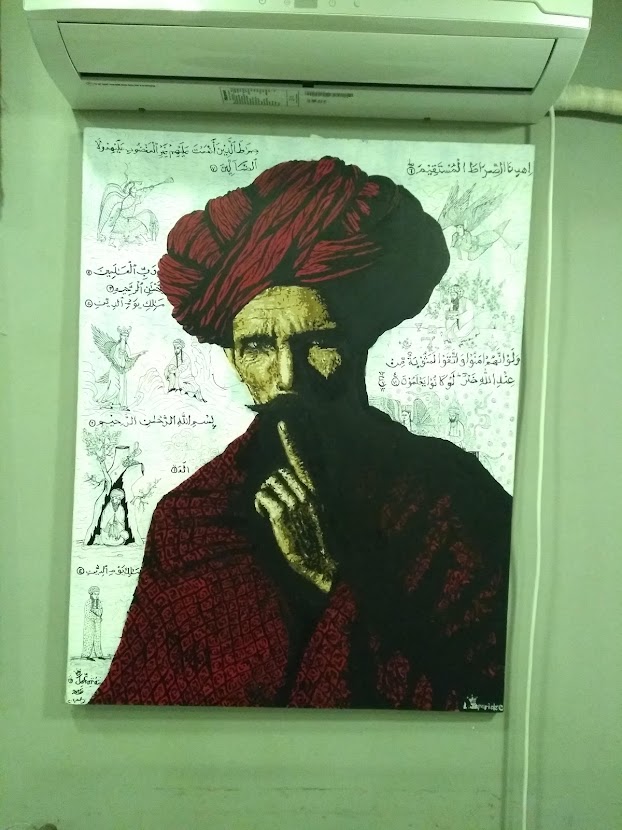 صِرَاطَ الَّذِينَ أَنْعَمْتَ عَلَيْهِمْ غَيْرِ الْمَغْضُوبِ عَلَيْهِمْ وَلَا
الضَّالِّينَ
اهْدِنَا الصِّرَاطَ الْمُسْتَقِيمَ
رَبِّ الْعَالَمِينَ
الرَّحِيمِ
مَالِكِ يَوْمِ الدِّينِ
وَلَوْ أَنَّهُمْ آمَنُوا وَاتَّقَوْا لَمَثُوبَةٌ مِنْ
عِنْدِ اللَّهِ خَيْرٌ لَوْ كَانُوا يَعْلَمُونَ
بِسْمِ اللَّهِ الرَّحْمَٰنِ الرَّحِيمِ
يَوْمِ الدِّينِ